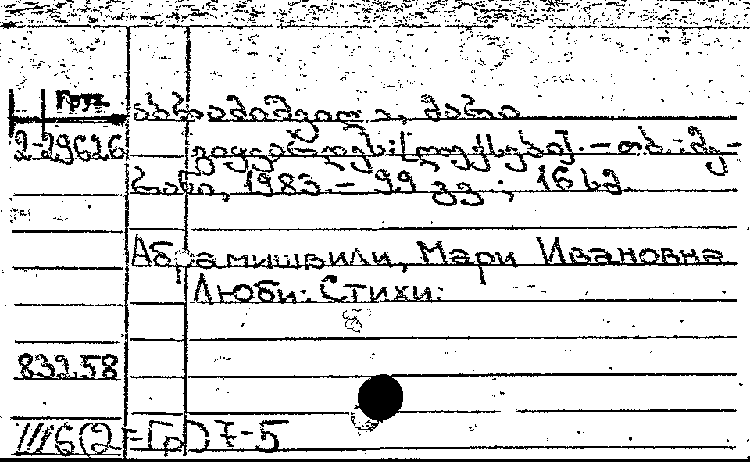 Груз.
აბრამიშვილი, მარი
2-29626
გიყვარდეს: [ლექსები]. – თბ. : მე-
რანი, 1983. – 99 გვ. ; 16 სმ
Абрамишвили, Мари Ивановна
Люби: Стихи.
832.58
Ш6(2=Гр)7-5